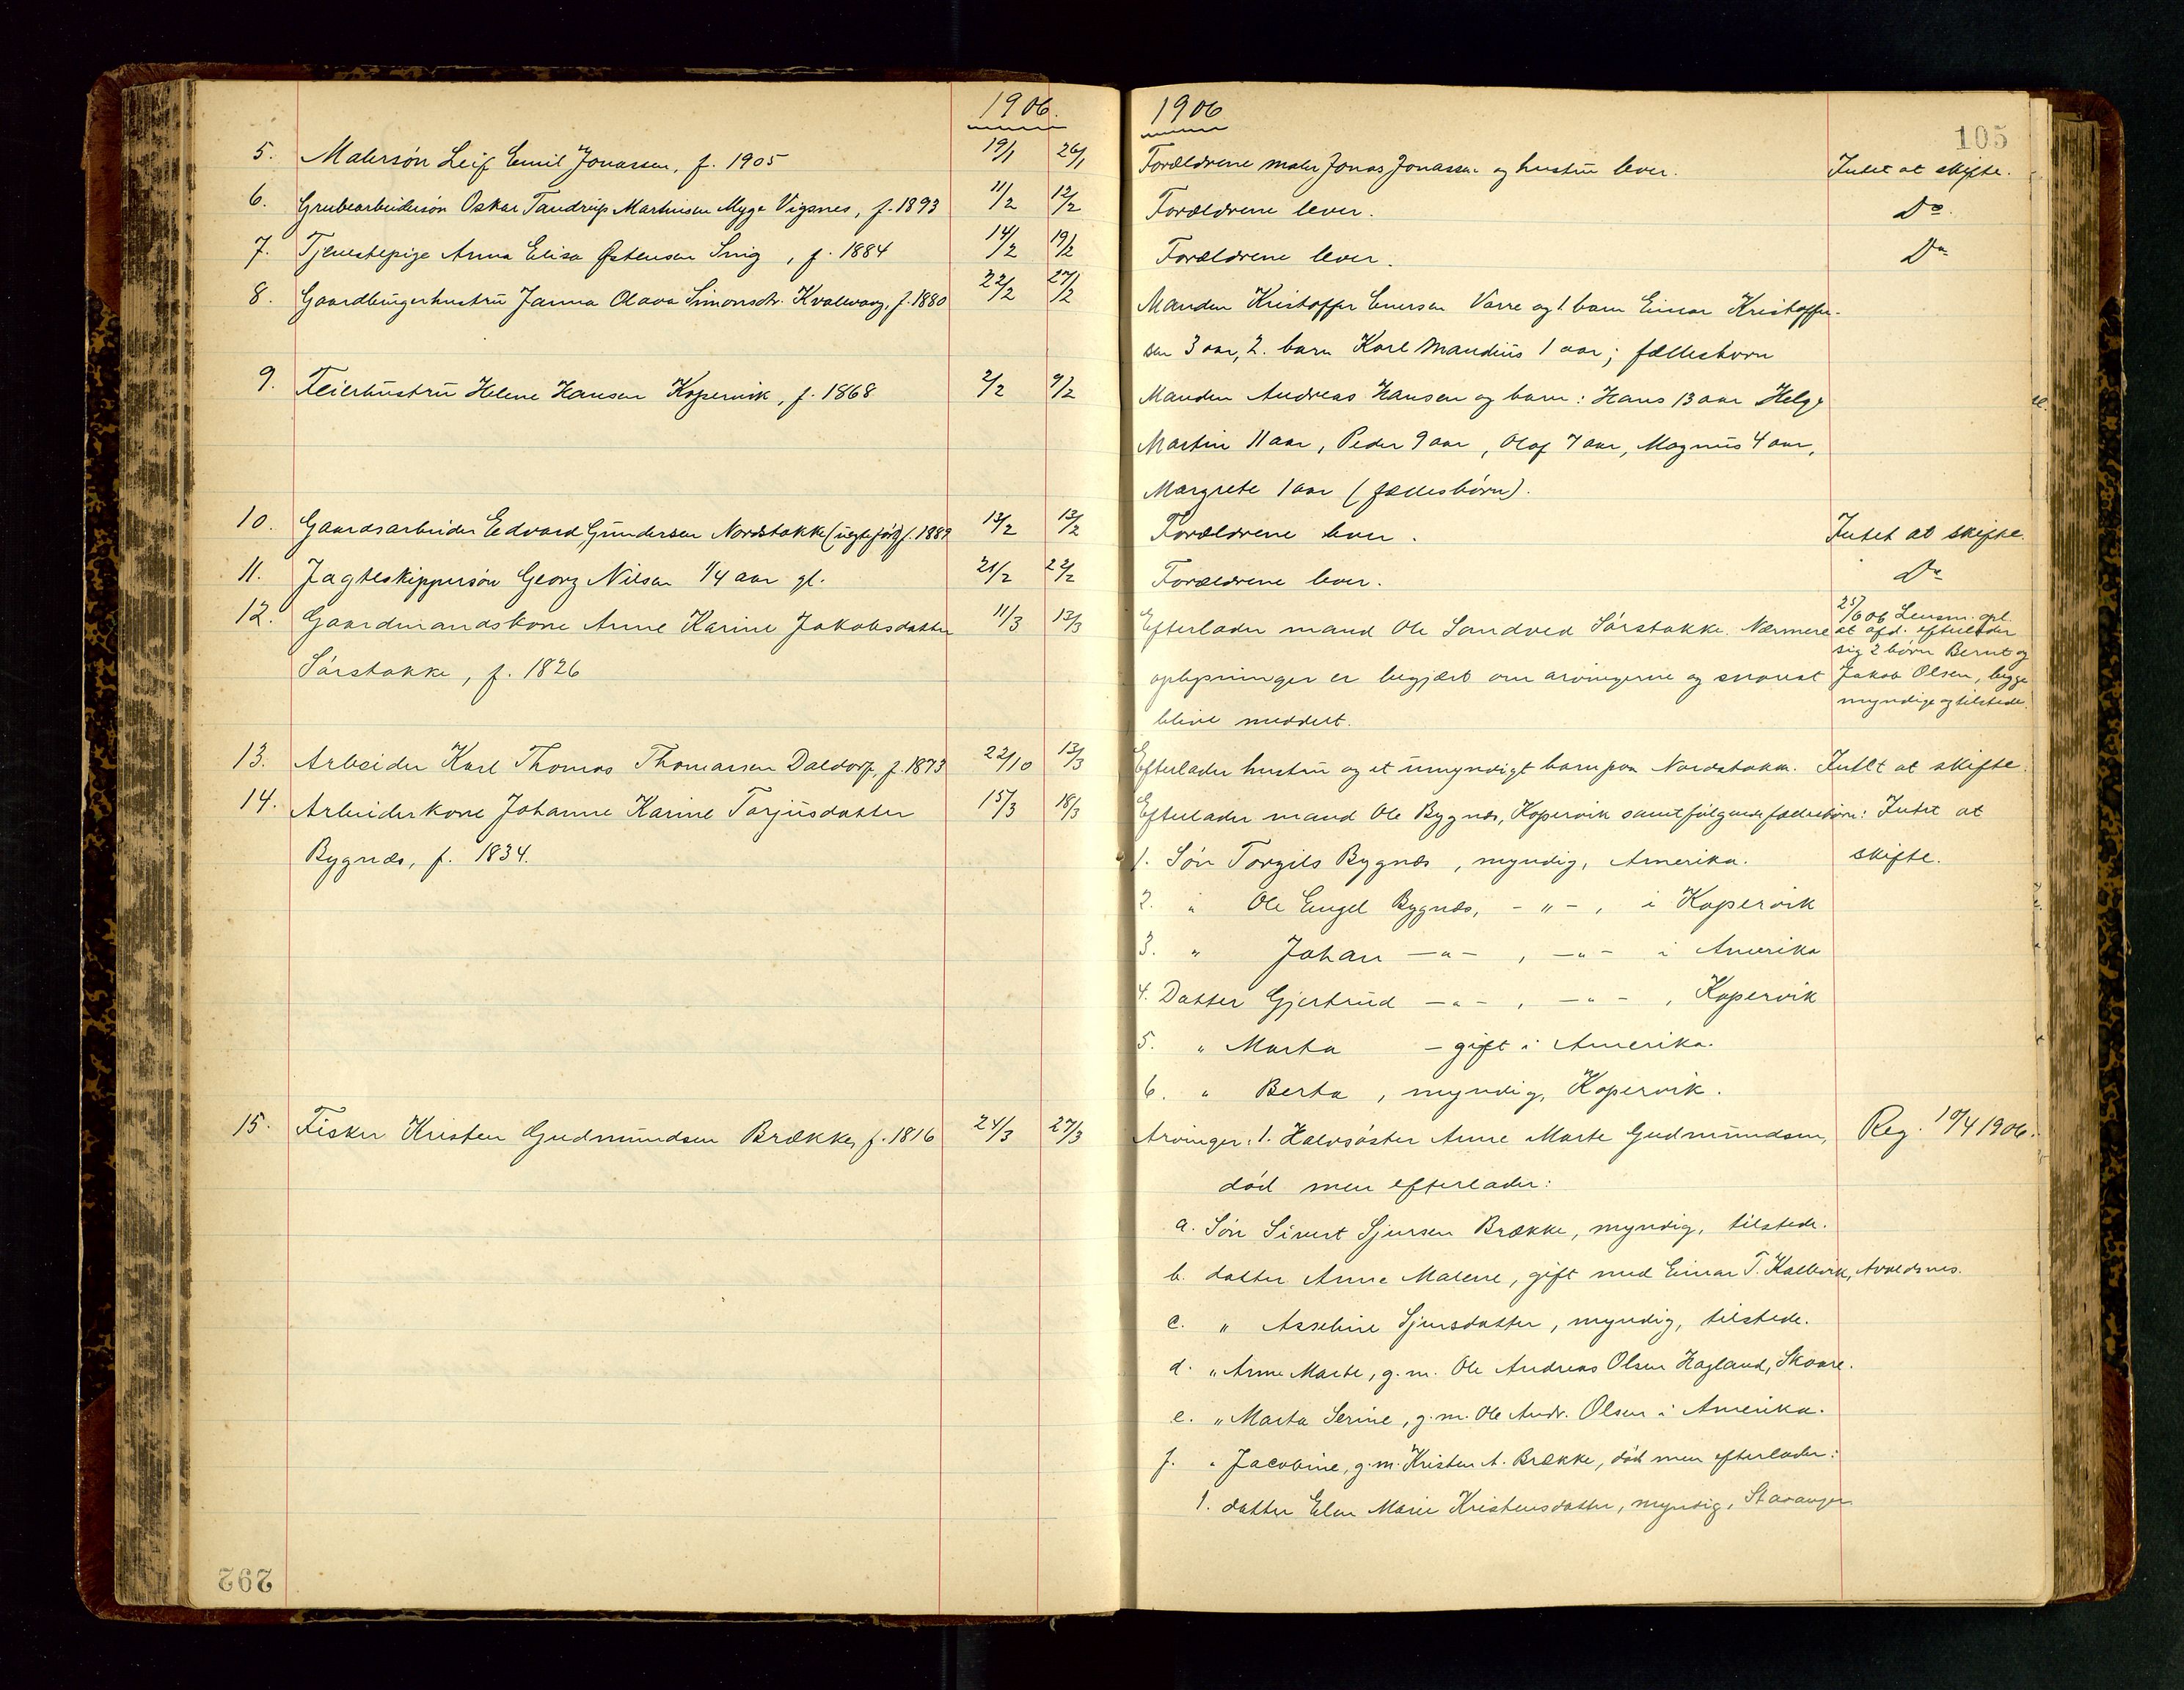 1906.
5. Malersøn Leif Emil Jonassen, f. 1905 19/1 26/1
6. Grubearbeidersøn Oskar Tandrup Martinsen Myge Vigsnes, f. 1893 11/2 12/2
7. Tjenestepige Anna Elisa Østensen Snig, f. 1884 14/2 19/2
8. Gaardbrugerhustru Janna Olava Simonsdtr. Kvalevaag, f. 1880 22/2 27/2
9. Feierhustru Helene Hansen Kopervik, f. 1868 2/2 9/2
10. Gaardsarbeider Edvard Gundersen Nordstokke (uegtefødt) f. 1889 12/2 13/2
11. Jagteskippersøn Georg Nilsen 1/4 aar gl. 21/2 22/2
12. Gaardmandskone Anne Karine Jakobsdatter 11/3 13/3
Sørstokke, f. 1826
13. Arbeider Karl Thomas Thomassen Daldorf, f. 1873 22/10 13/3
14. Arbeiderkone Johanne Karine Torjusdatter 15/3 18/3
Bygnæs, f. 1834.
15. Fisker Kristen Gudmundsen Brække, f. 1816 24/3 27/3
292
1906
105
Forældrene maler Jonas Jonassen og hustru lever. Intet at skifte.
Forældrene lever. Do.
Forældrene lever. Do
Manden Kristoffer Enersen Varre og 1. barn Einar Kristoffer-
sen 3 aar, 2. barn Karl Mandius 1 aar; fællesbørn
Manden Andreas Hansen og barn: Hans 13 aar Helge
Martin 11 aar, Peder 9 aar, Olaf 7 aar, Magnus 4 aar,
Margrete 1 aar (fællesbørn).
Forældrene lever. Intet at skifte.
Forældrene lever. Do
Efterlader mand Ole Sandved Sørstokke. Nærmere
oplysninger er begjært om arvingerne og snarest
blive meddelt.
25/6 06 Lensm. opl.
at afd. efterlader
sig 2 børn Bernt og
Jakob Olsen, begge
myndige og tilstede.
Efterlader hustru og et umyndigt barn paa Nordstokke. Intet at skifte.
Efterlader mand Ole Bygnæs, Kopervik samt følgende fællesbørn: Intet at
1. Søn Torgils Bygnæs, myndig, Amerika. skifte.
2. " Ole Engel Bygnæs, - " - , i Kopervik
3. " Johan - " - , - " - i Amerika
4. Datter Gjertrud - " - , - " - , Kopervik
5. " Marta - gift i Amerika.
6. " Berta, myndig, Kopervik.
Arvinger: 1. Halvsøster Anne Marte Gudmundsen, Reg. 10/4 1906.
død men efterlader:
a. Søn Sivert Sjursen Brække, myndig, tilstede.
b. datter Anne Malene, gift med Einar T. Kallevik, Avaldsnes.
c. " Asseline Sjursdatter, myndig, tilstede.
d. " Anne Marte, g. m. Ole Andreas Olsen Hagland, Skaare.
e. " Marta Serine, g. m. Ole Andr. Olsen i Amerika.
f. " Jacobine, g. m. Kristen A. Brække, død men efterlader:
1. datter Elen Marie Kristensdatter, myndig, Stavanger